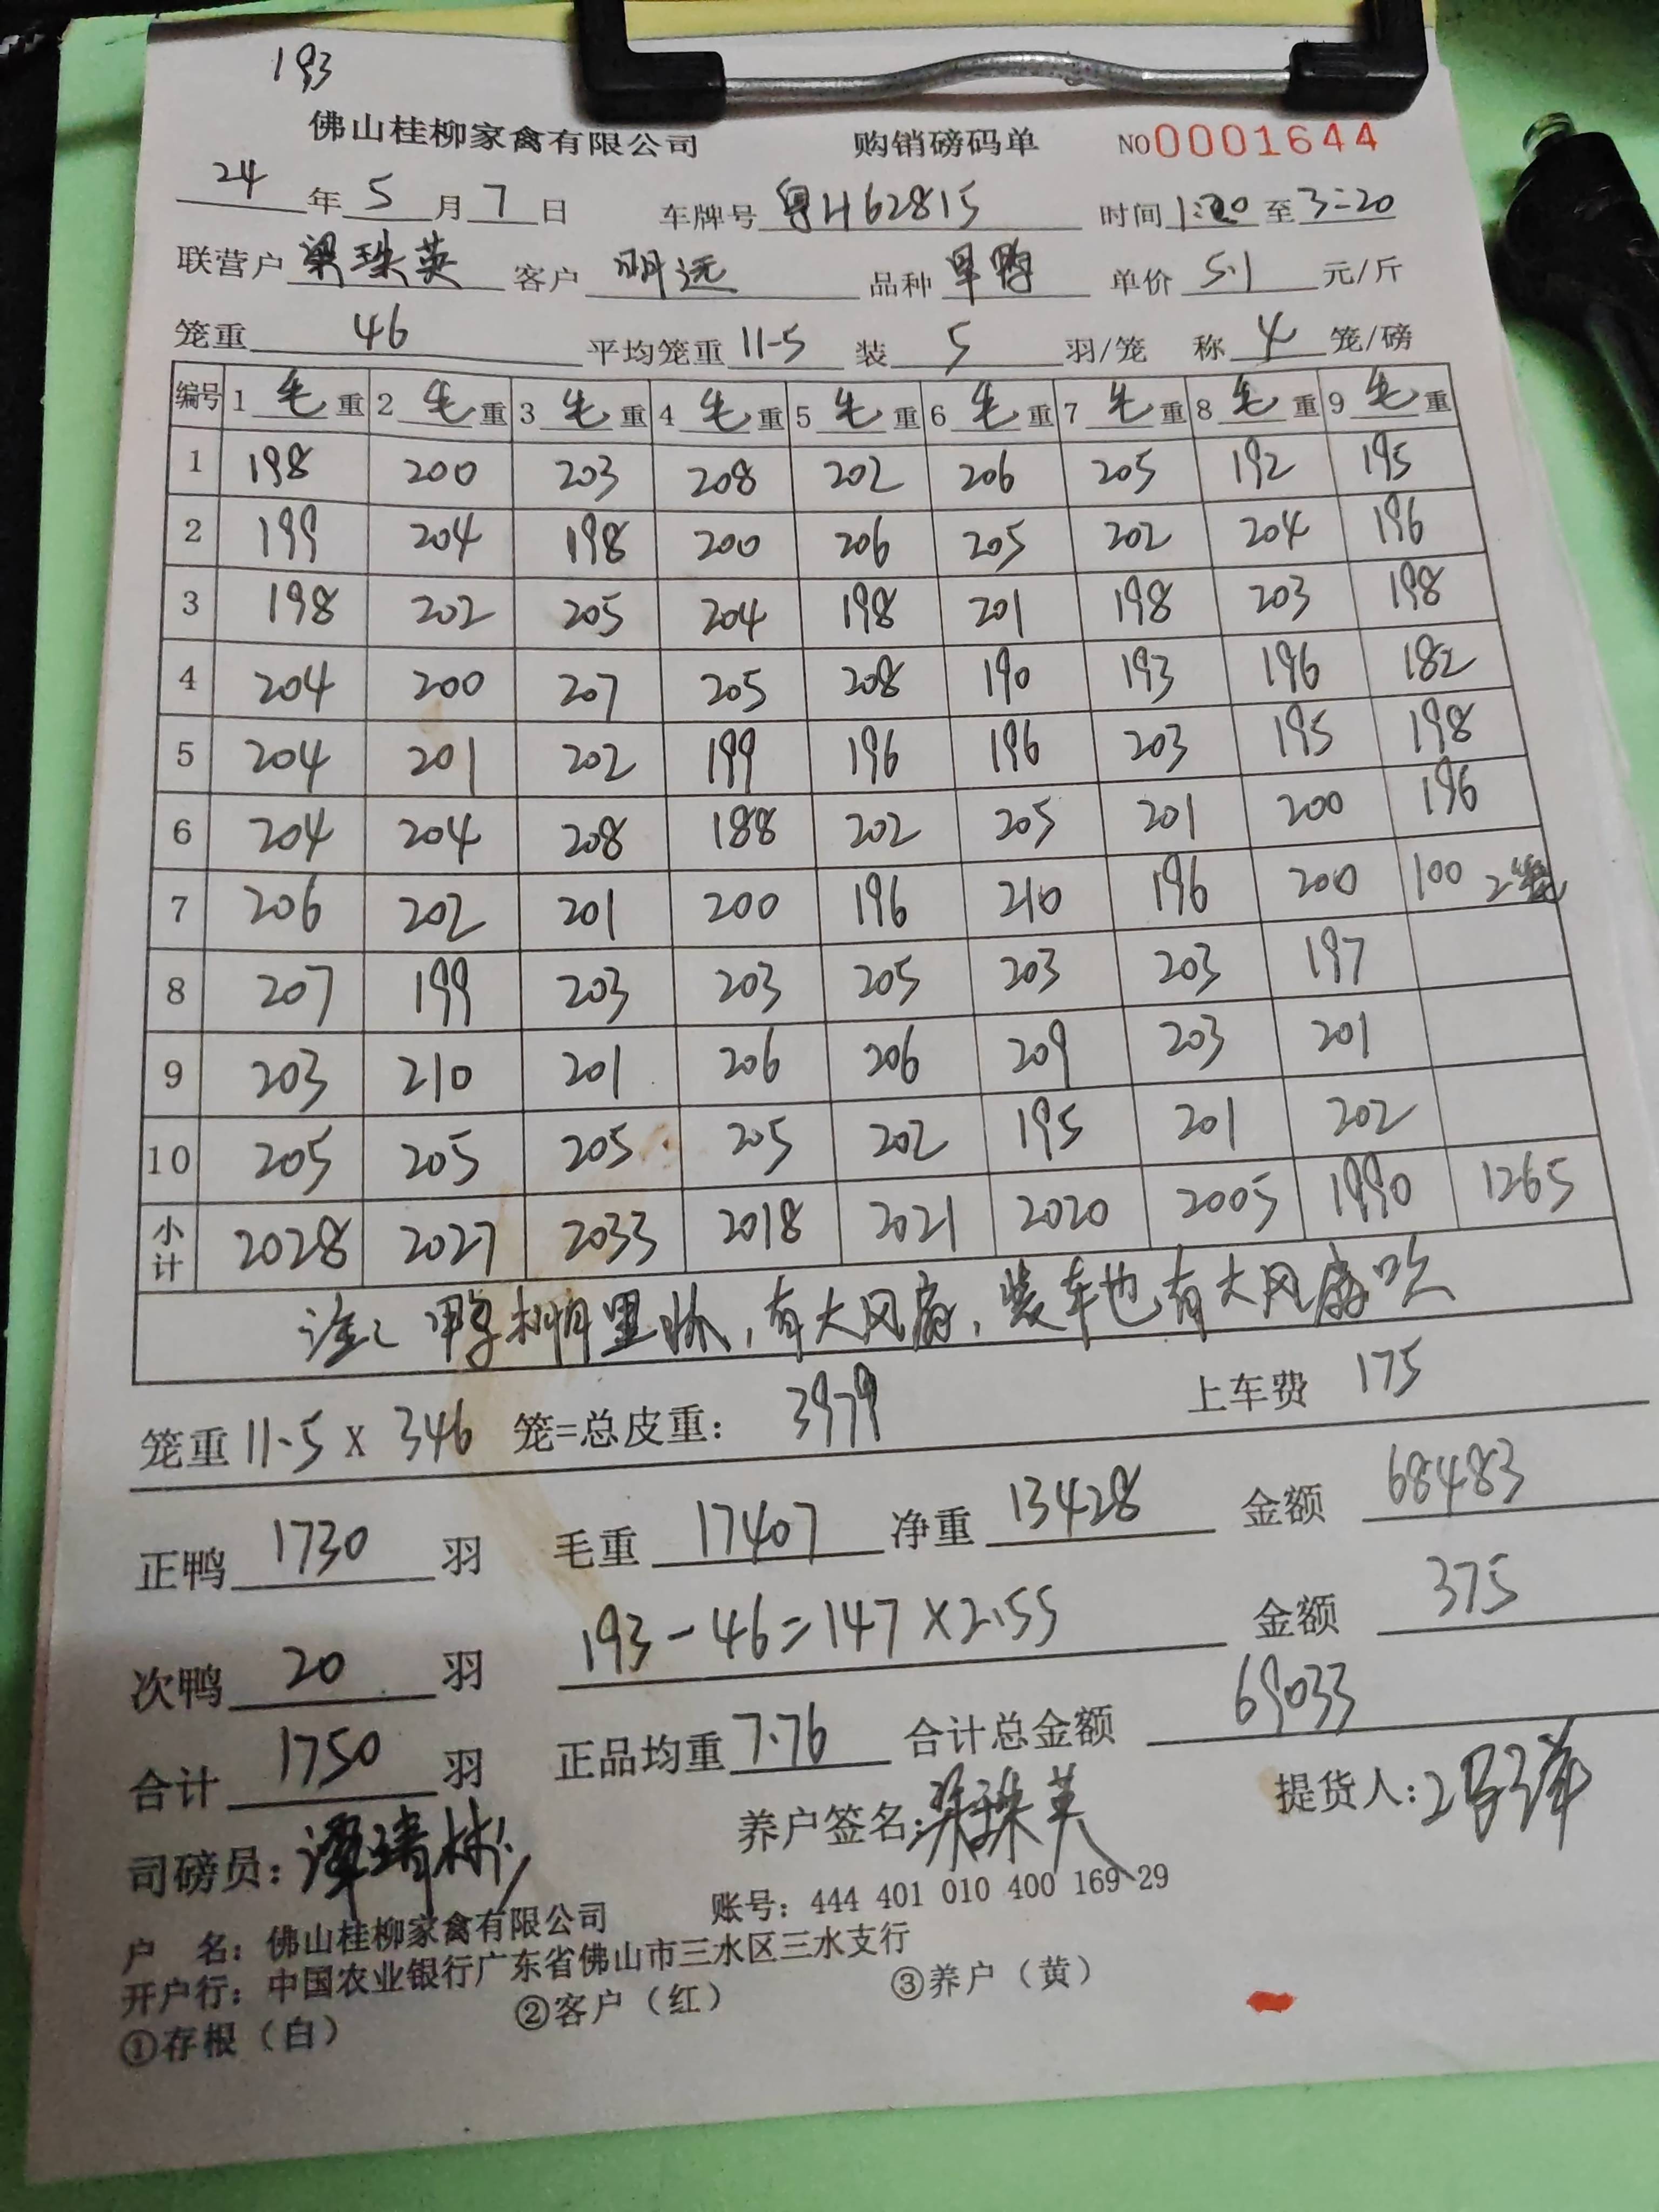 193
佛山桂柳家禽有限公司 购销磅码单 NO0001644
24年5月7日 车牌号粤H62815 时间1:20至3:20
联营户梁珠英 客户明远 品种旱鸭 单价5.1元/斤
笼重46 平均笼重11.5 装5羽/笼 称4笼/磅
编号 1毛重 2毛重 3毛重 4毛重 5毛重 6毛重 7毛重 8毛重 9毛重
1 198 200 203 208 202 206 205 192 195
2 199 204 198 200 206 205 202 204 196
3 198 202 205 204 198 201 198 203 198
4 204 200 207 205 208 190 193 196 182
5 204 201 202 199 196 196 203 195 198
6 204 204 208 188 202 205 201 200 196
7 206 202 201 200 196 210 196 200 100 2笼
8 207 199 203 203 205 203 203 197
9 203 210 201 206 206 209 203 201
10 205 205 205 205 202 195 201 202
小计 2028 2027 2033 2018 2021 2020 2005 1990 1265
注: 鸭棚里淋,有大风扇,装车也有大风扇吹
笼重11.5X346笼=总皮重:3979 上车费175
正鸭1730羽 毛重17407净重13428 金额68483
次鸭20羽 193-46=147×2.55 金额375
合计1750羽 正品均重7.76 合计总金额69033
司磅员: 养户签名:梁珠英 提货人:
户 名:佛山桂柳家禽有限公司 账号:444 401 010 400 169 29
开户行:中国农业银行广东省佛山市三水区三水支行
①存根(白) ②客户(红) ③养户(黄)